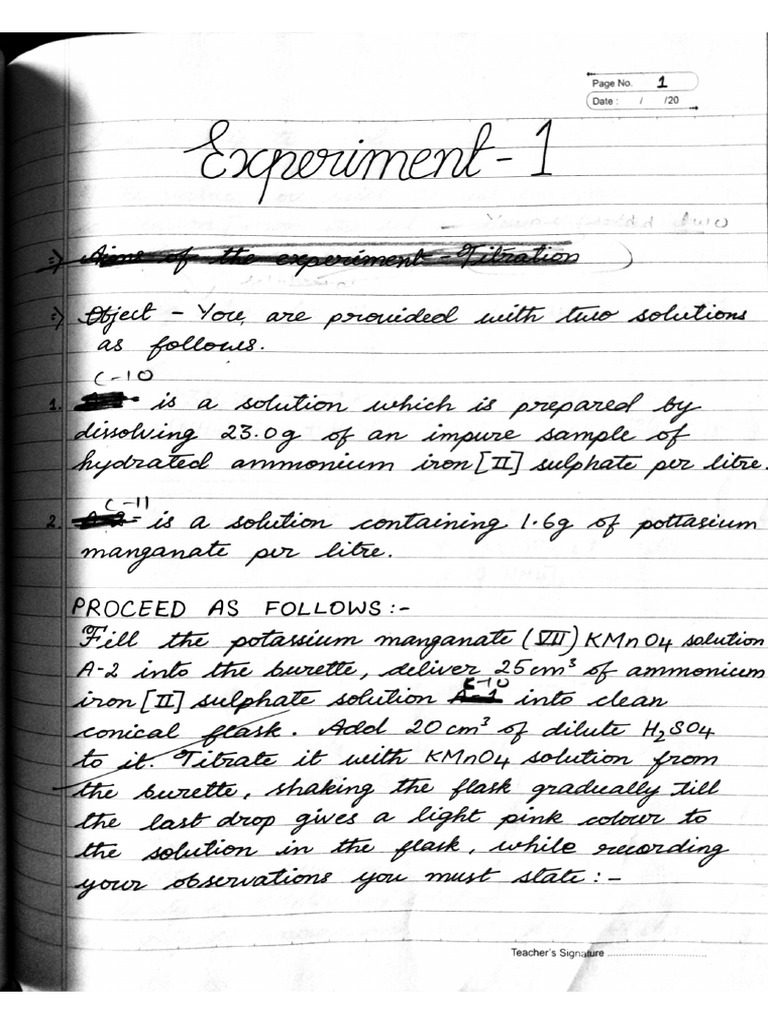 Page No. 1
Date : / /20
Experiment - 1
=> Aims of the experiment - Titration
=> Object - You, are provided with two solutions
as follows.
C-10
1. is a solution which is prepared by
dissolving 23.0g of an impure sample of
hydrated ammonium iron [II] sulphate per litre.
C-11
2. A-2 is a solution containing 1.6g of pottasium
manganate per litre.
PROCEED AS FOLLOWS :-
Fill the potassium manganate (VII) KMnO4 solution
A-2 into the burette, deliver 25cm³ of ammonium
C-10
iron [II] sulphate solution A-1 into clean
conical flask. Add 20cm³ of dilute H₂SO4
to it. Titrate it with KMnO4 solution from
the burette, shaking the flask gradually till
the last drop gives a light pink colour to
the solution in the flask, while recording
your observations you must state :-
Teacher's Signature ..............................